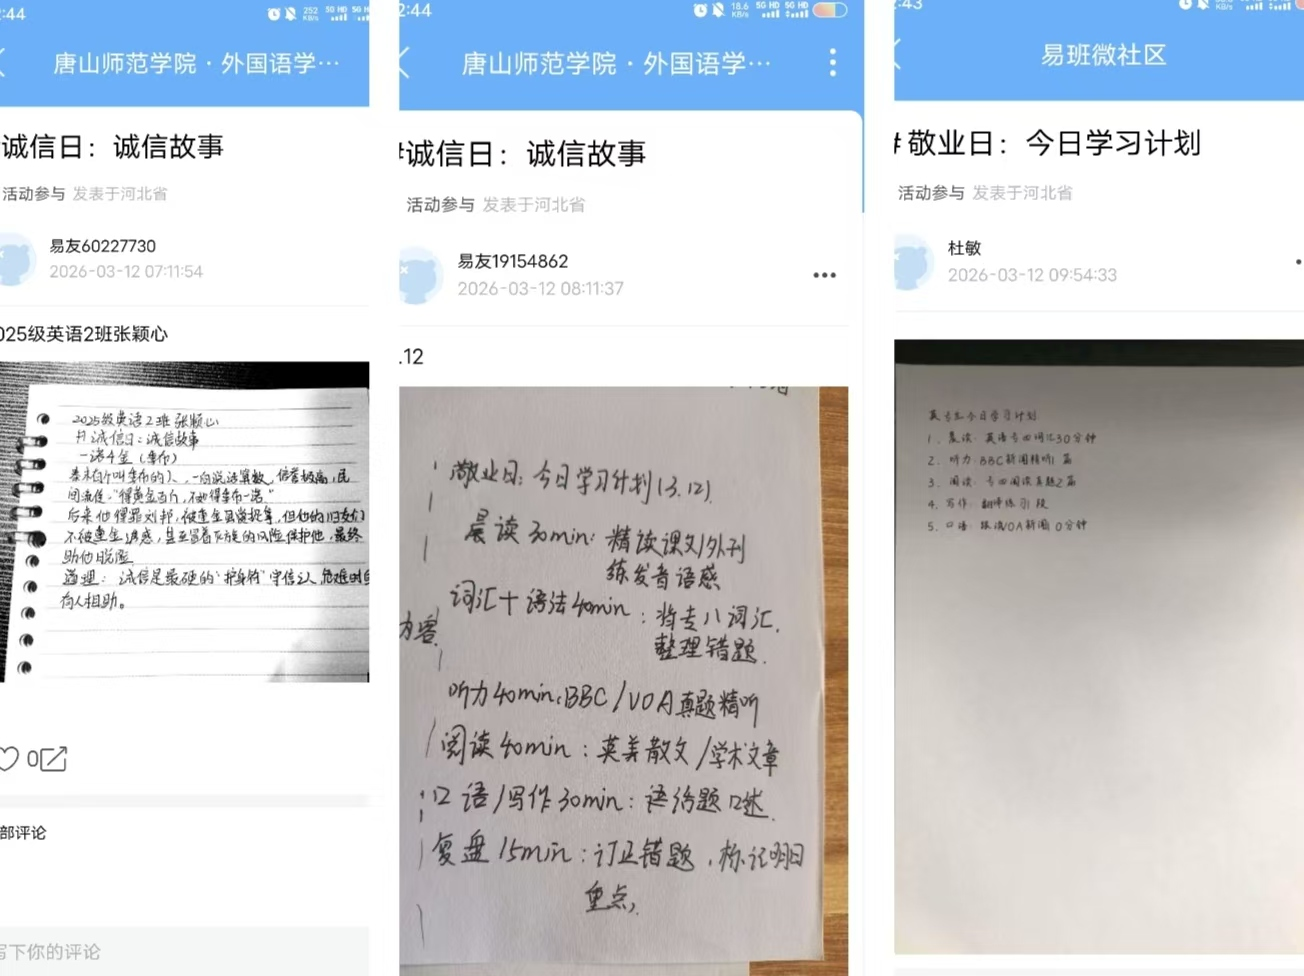 :44
252 KB/s 5G HD 5G
唐山师范学院 · 外国语学···
诚信日：诚信故事
活动参与 发表于河北省
易友60227730
2026-03-12 07:11:54
025级英语2班张颖心
2025级英语2班 张颖心
# 诚信日：诚信故事
一诺千金（季布）
秦末有个叫季布的人，一向说话算数，信誉极高，民
间流传："得黄金百斤，不如得季布一诺。"
后来他得罪刘邦，被重金悬赏捉拿，但他的旧友们
不被重金诱惑，甚至冒着灭族的风险保护他，最终
助他脱险
道理：诚信是最硬的"护身符"守信之人，危难时自
有人相助。
0
部评论
写下你的评论
2:44
18.6 KB/s 5G HD 5G HD
唐山师范学院 · 外国语学···
#诚信日：诚信故事
活动参与 发表于河北省
易友19154862
2026-03-12 08:11:37
.12
敬业日：今日学习计划(3.12)
晨读30min：精读课文/外刊
练发音语感
词汇+语法40min：背专八词汇，
整理错题.
内容
听力40min：BBC/VOA真题精听
阅读40min：英美散文/学术文章
口语/写作30min：话题口述.
复盘15min：订正错题，标记明日
重点，
:43
KB/s
易班微社区
# 敬业日：今日学习计划
活动参与 发表于河北省
杜敏
2026-03-12 09:54:33
英专生今日学习计划
1. 晨读：英语专四词汇30分钟
2. 听力：BBC新闻精听1篇
3. 阅读：专四阅读真题2篇
4. 写作：翻译练习1段
5. 口语：跟读VOA新闻 0分钟